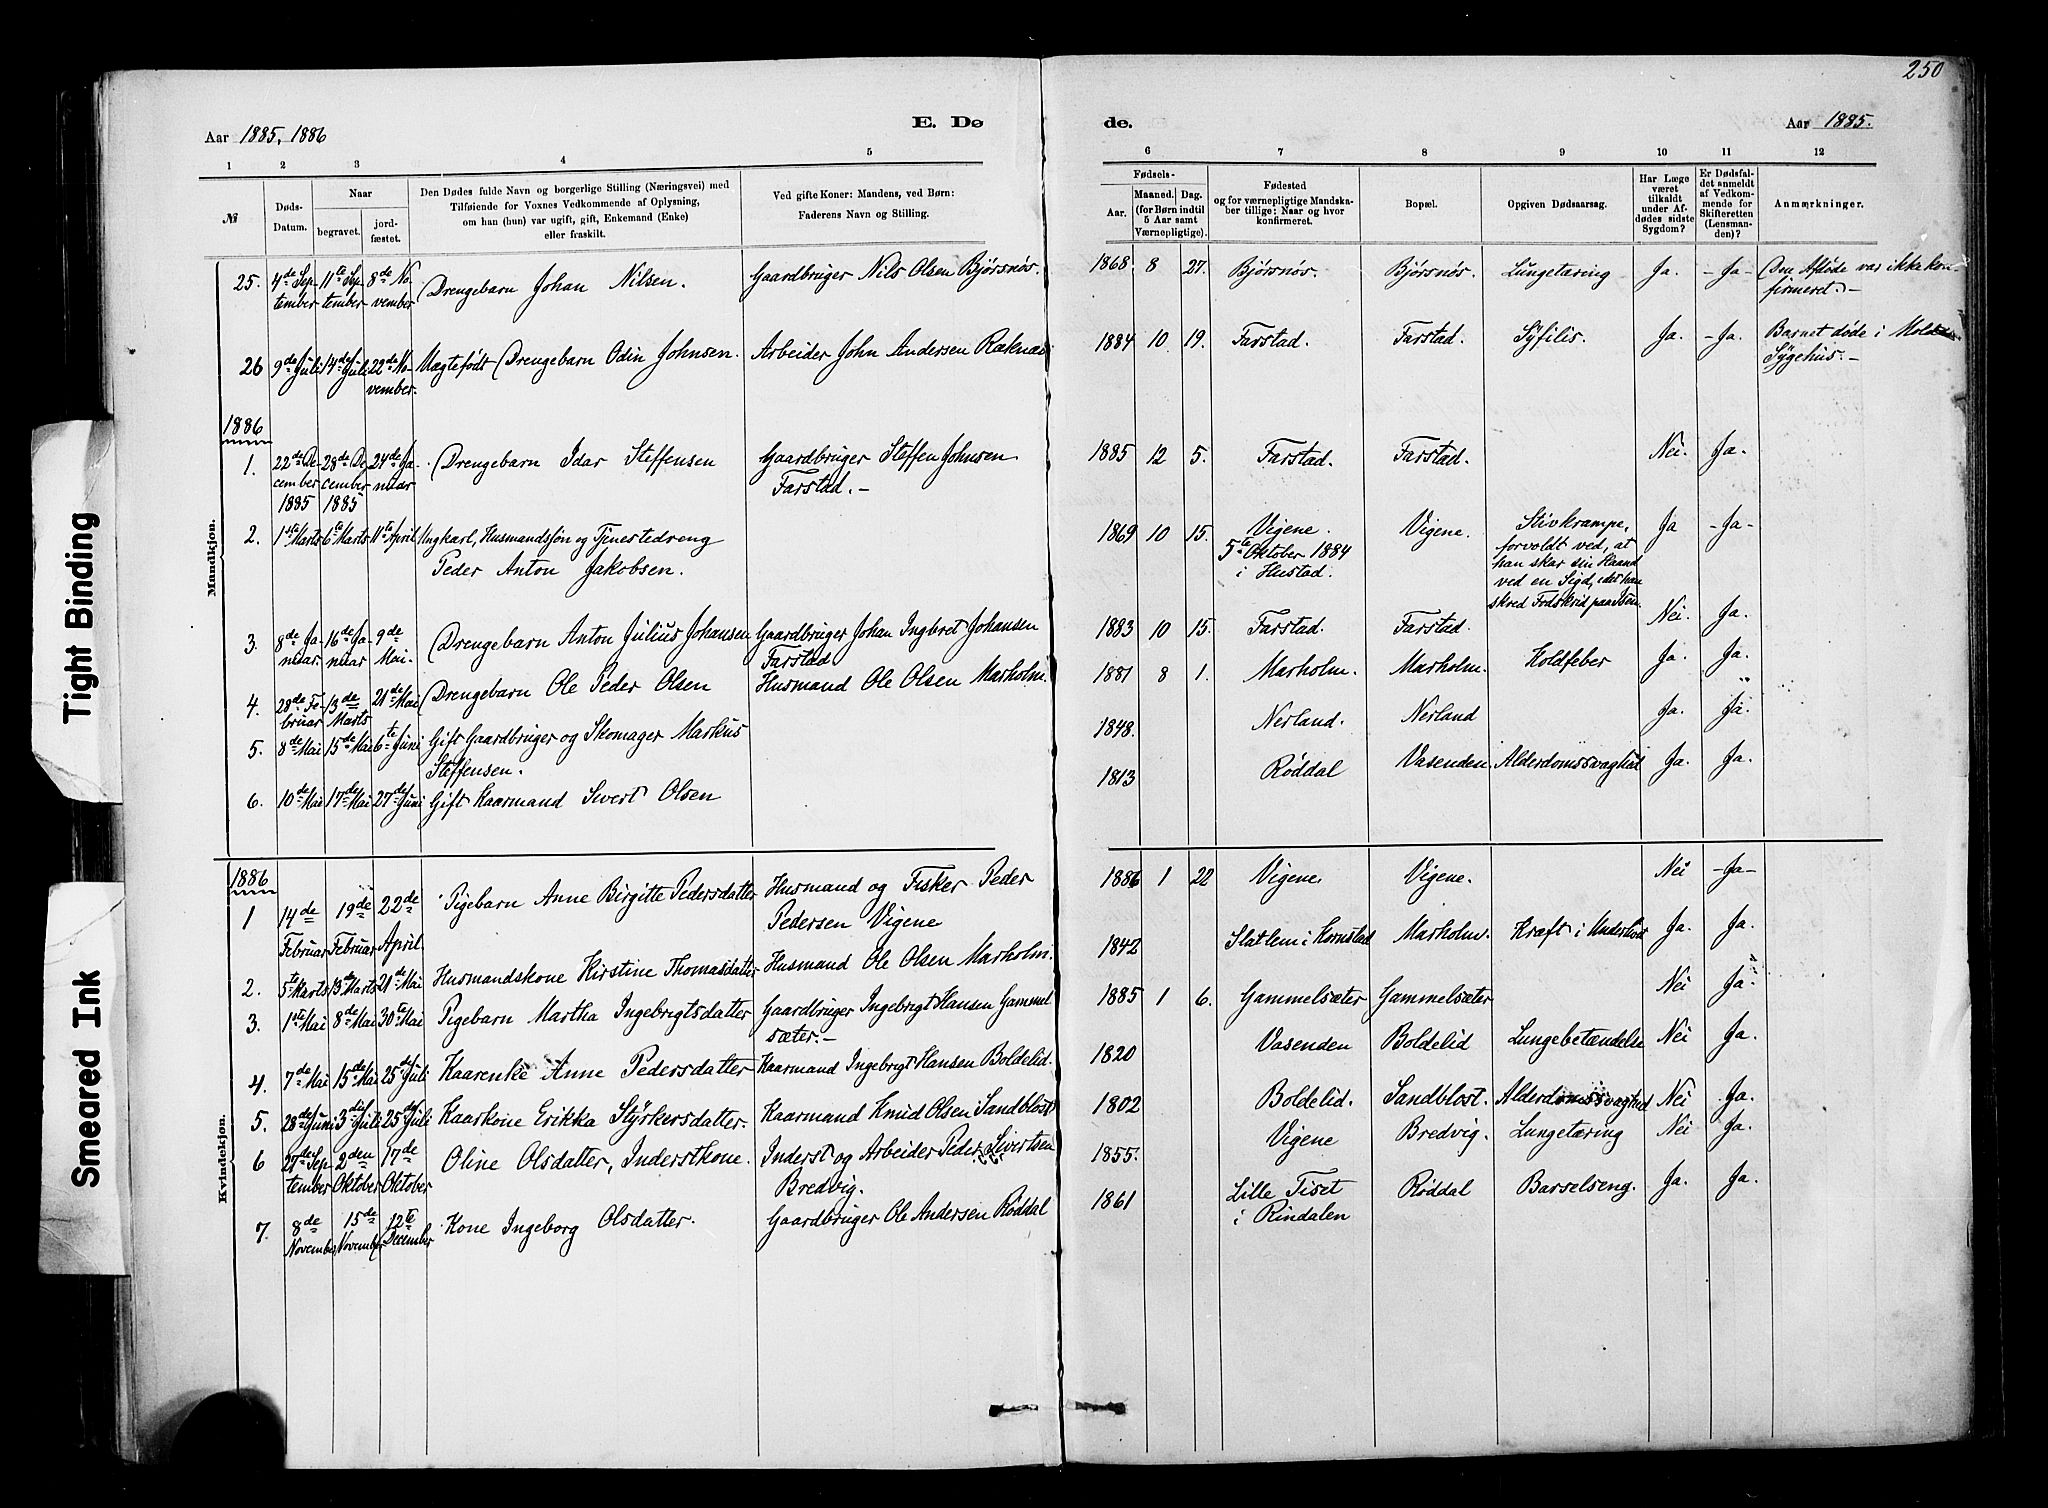 250
Aar 1885, 1886
E. Dø
de.
Aar 1885.
1 2 3 4 5 6 7 8 9 10 11 12
№
Døds-Datum.
Naar
begravet.
jord-fæstet.
Den Dødes fulde Navn og borgerlige Stilling (Næringsvei) med
Tilføiende for Voxnes Vedkommende af Oplysning,
om han (hun) var ugift, gift, Enkemand (Enke)
eller fraskilt.
Ved gifte Koner: Mandens, ved Børn:
Faderens Navn og Stilling.
Fødsels-
Aar.
Maaned. Dag.
(for Børn indtil
5 Aar samt
Værnepligtige).
Fødested
og for værnepligtige Mandska-
ber tillige: Naar og hvor
konfirmeret.
Bopæl.
Opgiven Dødsaarsag.
Har Læge
været
tilkaldt
under Af-
dødes sidste
Sygdom?
Er Dødsfal-
det anmeldt
af Vedkom-
mende for
Skifteretten
(Lensman-
den)?
Anmærkninger.
Mandkjøn.
25. 4de Sep- 11te Sep- 8de No- Drengebarn Johan Nilsen. Gaardbruger Nils Olsen Bjørsnøs. 1868 8 27. Bjørsnøs. Bjørsnøs. Lungetæring Ja. - Ja - Den Afdøde var ikke kon-
tember tember vember firmeret. -
26 9de Juli 14de Juli 22de No- Uægtefødt Drengebarn Odin Johnsen. Arbeider John Andersen Raknæs 1884 10 19. Farstad. Farstad. Syfilis. Ja. - Ja. Barnet døde i Molde
vember. Sygehus. -
1886
1. 22de De- 28de De- 24de Ja- Drengebarn Idar Steffensen Gaardbruger Steffen Johnsen 1885 12 5. Farstad. Farstad. Nei. Ja.
cember cember nuar Farstad. -
1885 1885
2. 1ste Marts 6te Marts 11te April Ungkarl, Husmandssøn og Tjenestedreng 1869 10 15. Vigene. Vigene. Stivkrampe, Ja - Ja -
Peder Anton Jakobsen. 5te Oktober 1884 forvoldt ved, at
i Hustad. han skar sin Haand
ved en Sigd, idet han
skred Fodskrid paa Isen.
3. 8de Ja- 16de Ja- 9de Drengebarn Anton Julius Johansen Gaardbruger Johan Ingbret Johansen 1883 10 15. Farstad. Farstad. Nei. Ja.
nuar nuar Mai. Farstad
4. 28de Fe- 13de 21de Mai Drengebarn Ole Peder Olsen Husmand Ole Olsen Marholm. 1881 8 1. Marholm. Marholm. Koldfeber Ja. Ja.
bruar Marts
5. 8de Mai 15de Mai 6te Juni Gift Gaardbruger og Skomager Markus 1848. Nerland. Nerland Ja. Ja.
Steffensen.
6. 10de Mai 17de Mai 27de Juni Gift Kaarmand Sivert Olsen 1813 Røddal Vasenden. Alderdomssvaghed Ja. Ja.
Kvindekjøn.
1886
1 14de 19de 22de Pigebarn Anne Birgitte Pedersdatter Husmand og Fisker Peder 1886 1 22 Vigene. Vigene. Nei - Ja -
Februar Februar April Pedersen Vigene
2. 5te Marts 13de Marts 21de Mai Husmandskone Kirstine Thomasdatter Husmand Ole Olsen Marholm. 1842 Slatlem i Kornstad Marholm. Kræft i Underlivet Ja. Ja.
3. 1ste Mai 8de Mai 30te Mai Pigebarn Martha Ingebrigtsdatter Gaardbruger Ingebrigt Hansen Gammel 1885 1 6. Gammelsæter Gammelsæter Nei Ja.
sæter. -
4. 7de Mai 15de Mai 25de Juli Kaarenke Anne Pedersdatter Kaarmand Ingebrigt Hansen Boldelid. 1820 Vasenden Boldelid Lungebetændelse Nei Ja.
5. 28de Juni 3die Juli 25de Juli Kaarkone Erikka Styrkersdatter. Kaarmand Knud Olsen Sandblost 1802 Boldelid. Sandblost. Alderdomssvaghed Nei Ja.
6 27de Sep- 2den 17de Oline Olsdatter, Inderstkone. Inderst og Arbeider Peder Sivertsen 1855. Vigene Bredvig. Lungetæring Nei Ja.
tember Oktober Oktober Bredvig.
7. 8de 15de 12te Kone Ingeborg Olsdatter. Gaardbruger Ole Andersen Røddal 1861 Lille Tiset Røddal Barselseng. Ja. Ja.
November November December i Rindalen
Tight Binding
Smeared Ink